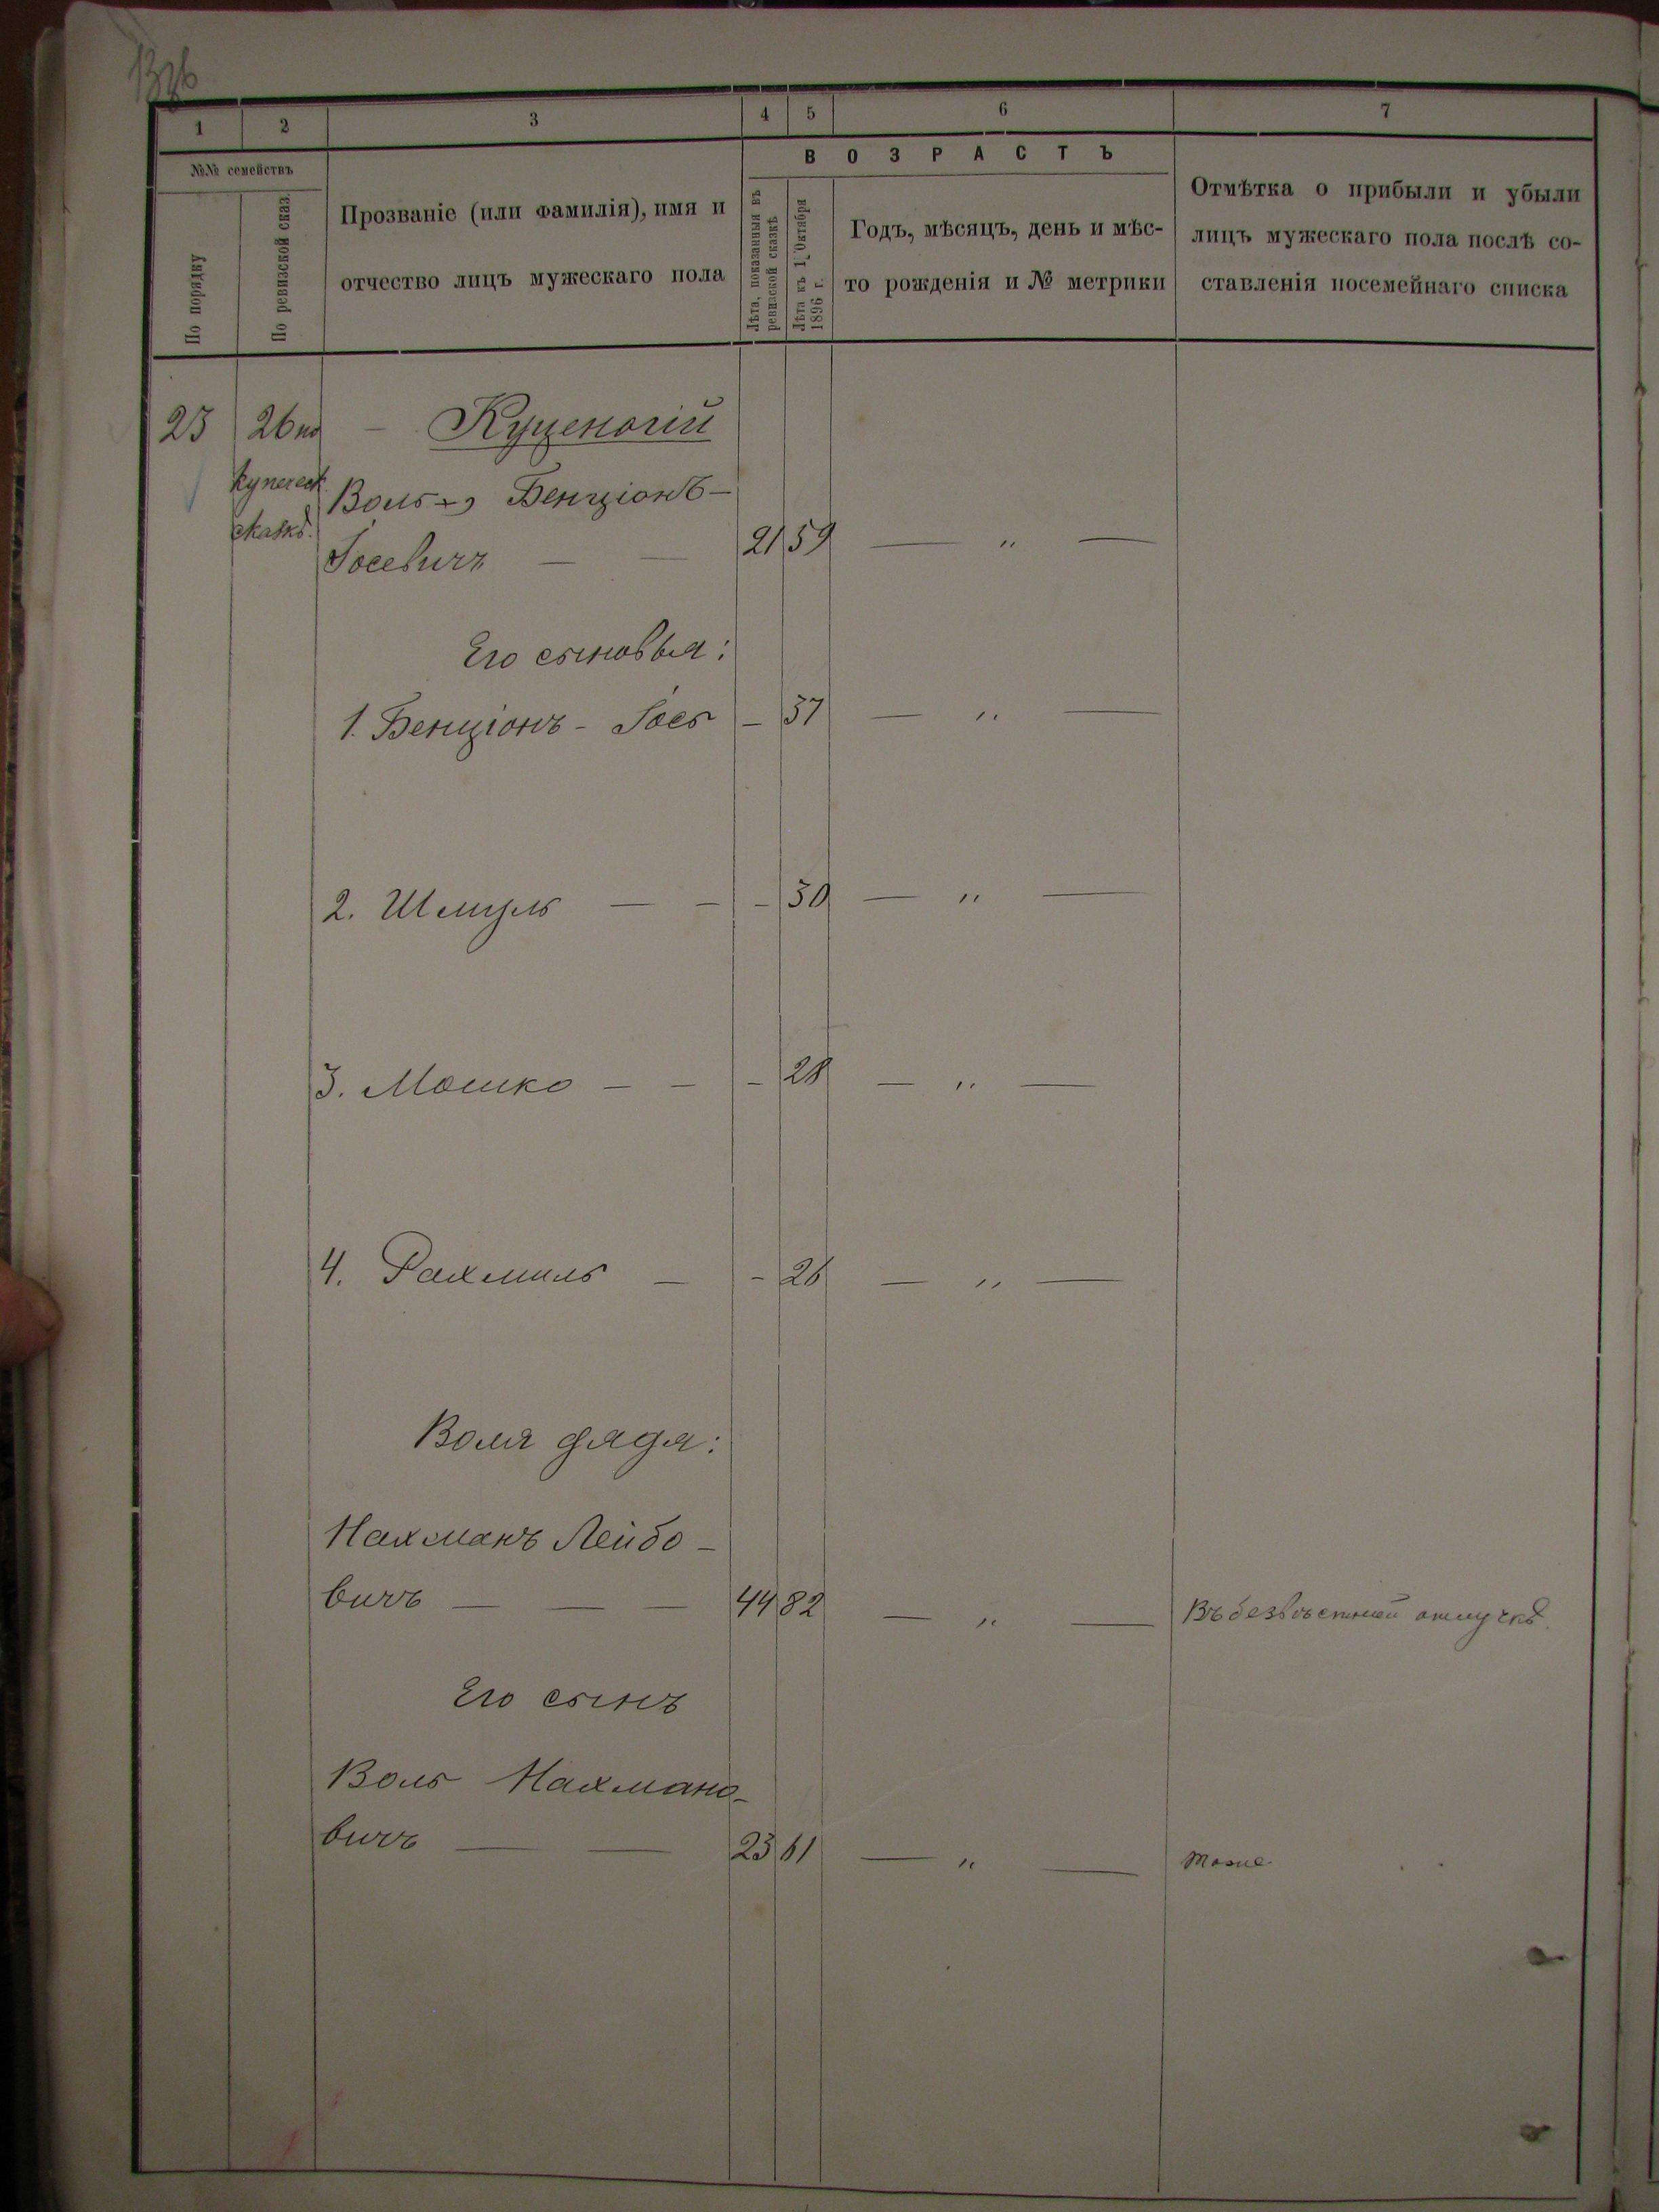 1 2 3 4 5 6 7
№№ семействъ
По порядку
По ревизской сказ.
Прозваніе (или фамилія), имя и
отчество лицъ мужескаго пола
ВОЗРАСТЪ
Лѣта, показанныя въ
ревизской сказкѣ
Лѣта къ 1 Октября
1896 г.
Годъ, мѣсяцъ, день и мѣс-
то рожденія и № метрики
Отмѣтка о прибыли и убыли
лицъ мужескаго пола послѣ со-
ставленія посемейнаго списка
23 26 по — Куценогій
купеческ.
сказкѣ.
Воль Бенціонъ-
Іосевичъ — — 21 59 — „ —
Его сыновья:
1. Бенціонъ - Іось – 37 — „ —
2. Шмуль — – – 30 — „ —
3. Мошко – – – 28 — „ —
4. Рахмиль — – 26 — „ —
Воля дядя:
Нахманъ Лейбо-
вичъ — — — 44 82 — „ — Въ безвѣстной отлучкѣ.
Его сынъ
Воль Нахмано-
вичъ — — 23 61 — „ — тоже